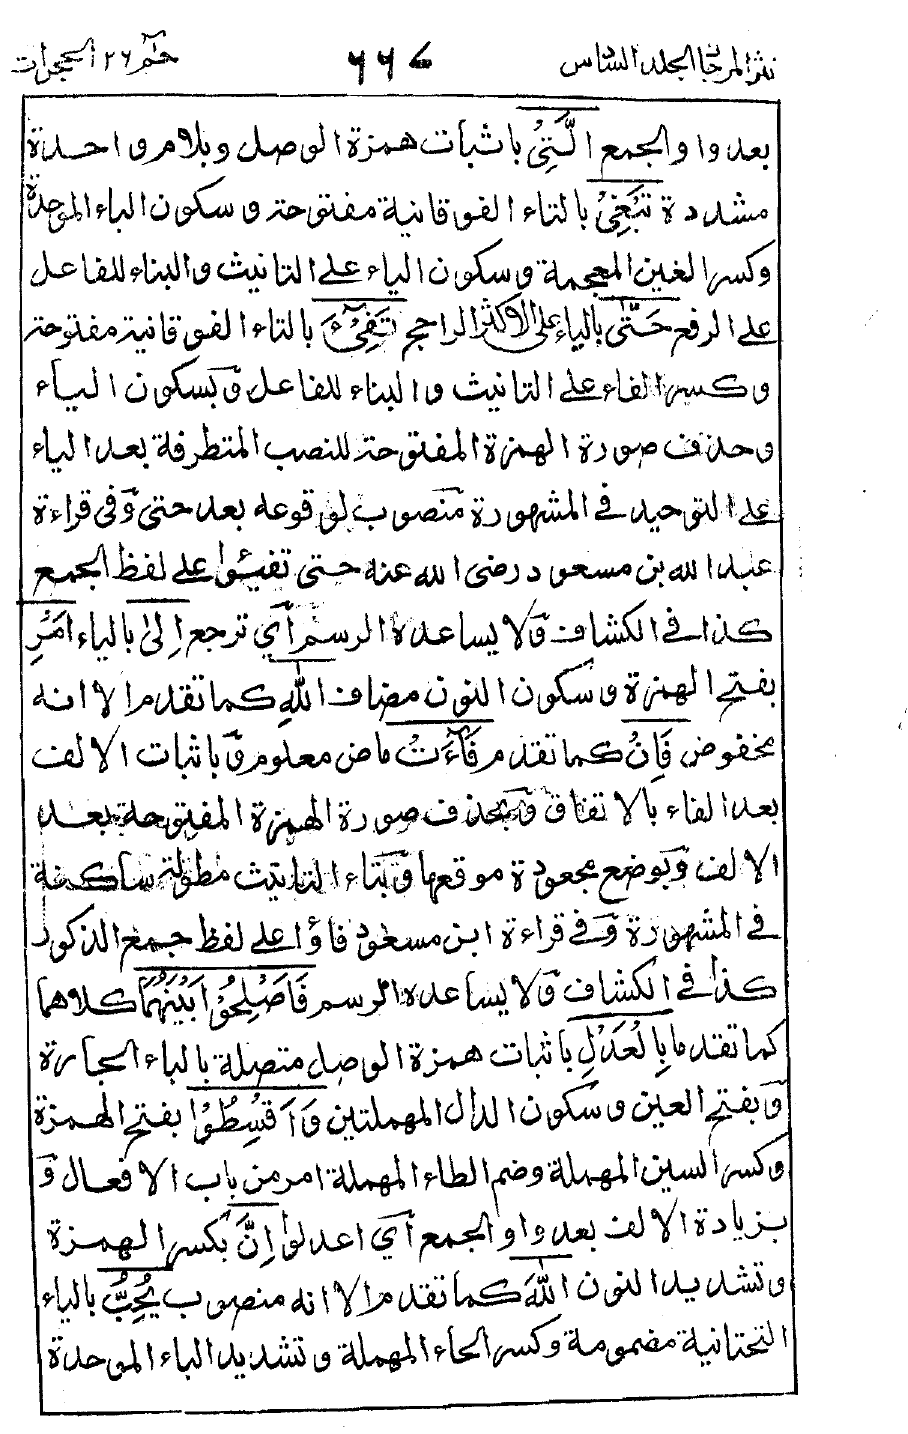 نثر المرجان المجلد السادس ٦٦٧ حم ٢٦ الحجرات
بعد واو الجمع الَّتِيْ باثبات همزة الوصل وبلام واحدة
مشددة تَبْغِيْ بالتاء الفوقانية مفتوحة وسكون الباء الموحدة
وكسر الغين المعجمة وسكون الياء على التانيث والبناء للفاعل
على الرفع حَتّٰى بالياء على الاكثر الراجح تَفِيْٓءَ بالتاء الفوقانية مفتوحة
وكسر الفاء على التانيث والبناء للفاعل وبسكون الياء
وحذف صورة الهمزة المفتوحة للنصب المتطرفة بعد الياء
على التوحيد في المشهورة منصوب لوقوعه بعد حتى وفي قراءة
عبد الله بن مسعود رضى الله عنه حتى تفيئوا على لفظ الجمع
كذا في الكشاف ولا يساعده الرسم أي ترجع اِلىٰ بالياء اَمْرِ
بفتح الهمزة وسكون النون مضاف اللّٰهِ كما تقدم الا انه
مخفوض فَاِنْ كما تقدم فَآءَتْ ماض معلوم وباثبات الالف
بعد الفاء بالاتفاق وبحذف صورة الهمزة المفتوحة بعد
الالف وبوضع مجعودة موقعها وبتاء التانيث مطولة ساكنة
في المشهورة وفي قراءة ابن مسعود فاؤا على لفظ جمع الذكور
كذا في الكشاف ولا يساعده الرسم فَاَصْلِحُوْا بَيْنَهُمَا كلاهما
كما تقدما بِالْعَدْلِ باثبات همزة الوصل متصلة بالباء الجارة
وبفتح العين وسكون الدال المهملتين وَاَقْسِطُوْا بفتح الهمزة
وكسر السين المهملة وضم الطاء المهملة امر من باب الافعال و
بزيادة الالف بعد واو الجمع أي اعدلوا اِنَّ بكسر الهمزة
وتشديد النون اللّٰهَ كما تقدم الا انه منصوب يُحِبُّ بالياء
التحتانية مضمومة وكسر الحاء المهملة وتشديد الباء الموحدة